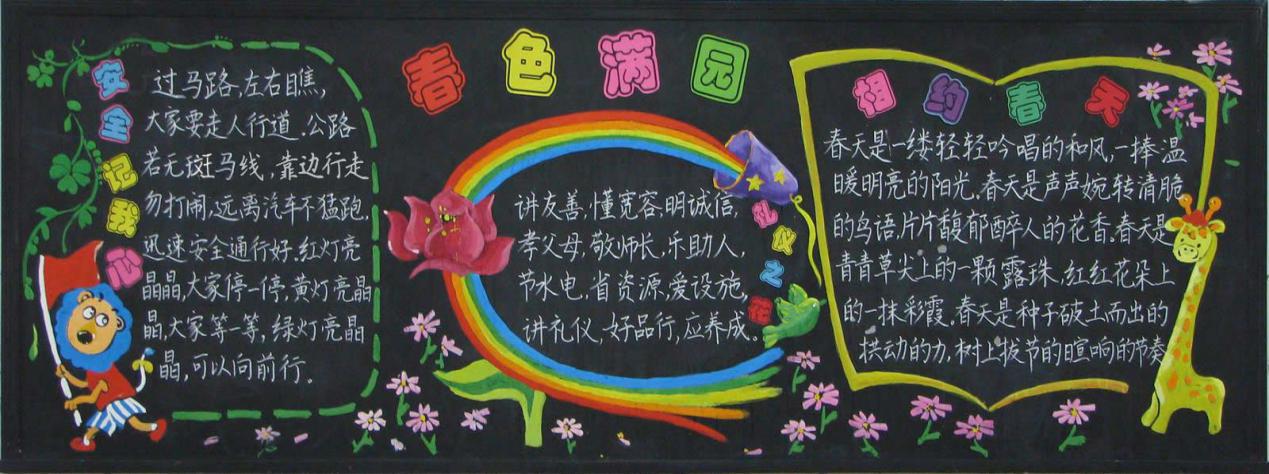 春色满园
安全记我心
过马路,左右瞧,
大家要走人行道.公路
若无斑马线,靠边行走
勿打闹,远离汽车不猛跑,
迅速安全通行好.红灯亮
晶晶,大家停一停,黄灯亮晶
晶,大家等一等,绿灯亮晶
晶,可以向前行。
礼仪之花
讲友善,懂宽容,明诚信,
孝父母,敬师长,乐助人,
节水电,省资源,爱设施,
讲礼仪,好品行,应养成。
相约春天
春天是一缕轻轻吟唱的和风,一捧温
暖明亮的阳光.春天是声声婉转清脆
的鸟语,片片馥郁醉人的花香。春天是
青青草尖上的一颗露珠,红红花朵上
的一抹彩霞。春天是种子破土而出的
拱动的力,树上拔节的喧响的节奏